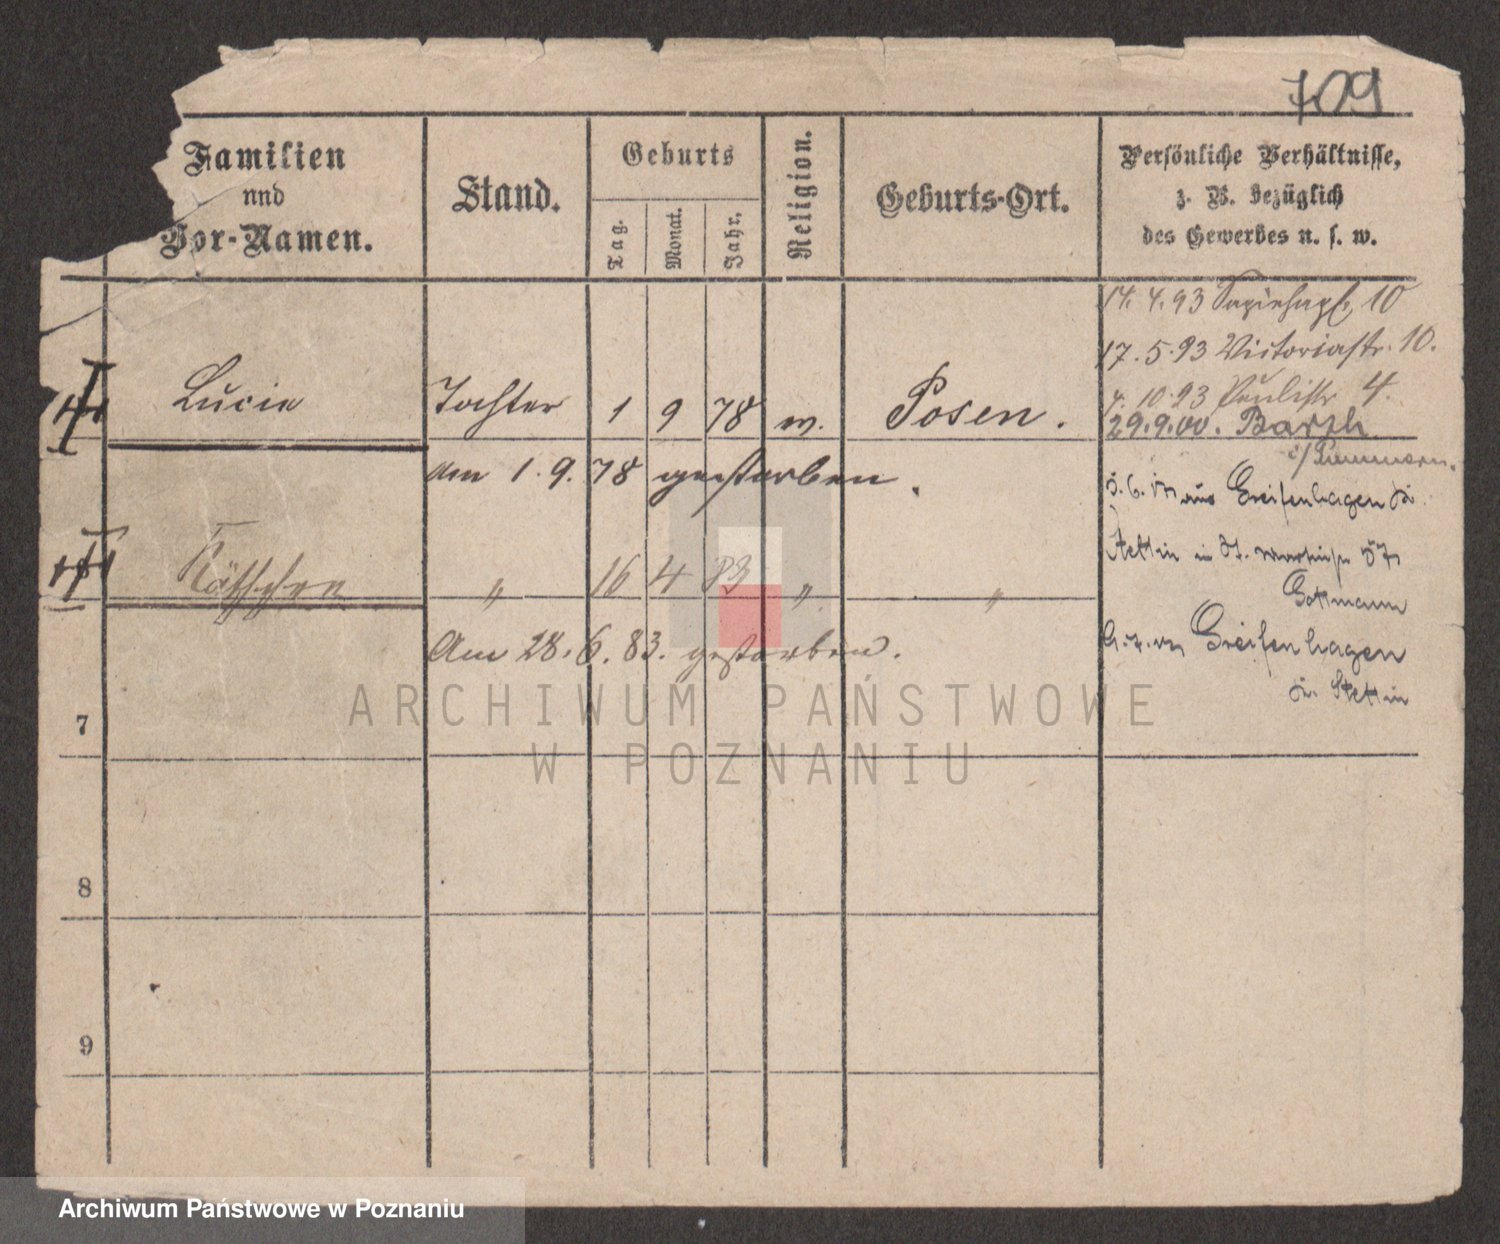 709
Familien
und
Vor-Namen.
Stand.
Geburts
Tag.
Monat.
Jahr.
Religion.
Geburts-Ort.
Persönliche Verhältnisse,
z. B. bezüglich
des Gewerbes u. s. w.
14. 4. 93 10
17. 5. 93 Victoriastr. 10.
4. 10. 93 Paulistr 4.
Lucie Tochter 1 9 78 w. Posen.
29. 9. 00.
am 1. 9. 78 gestorben.
aus Greifenhagen
Stettin in
Käthchen " 16 4 83 " "
Am 28. 6. 83. gestorben.
Greifenhagen
Stettin
7
8
9
ARCHIWUM PAŃSTWOWE
W POZNANIU
Archiwum Państwowe w Poznaniu